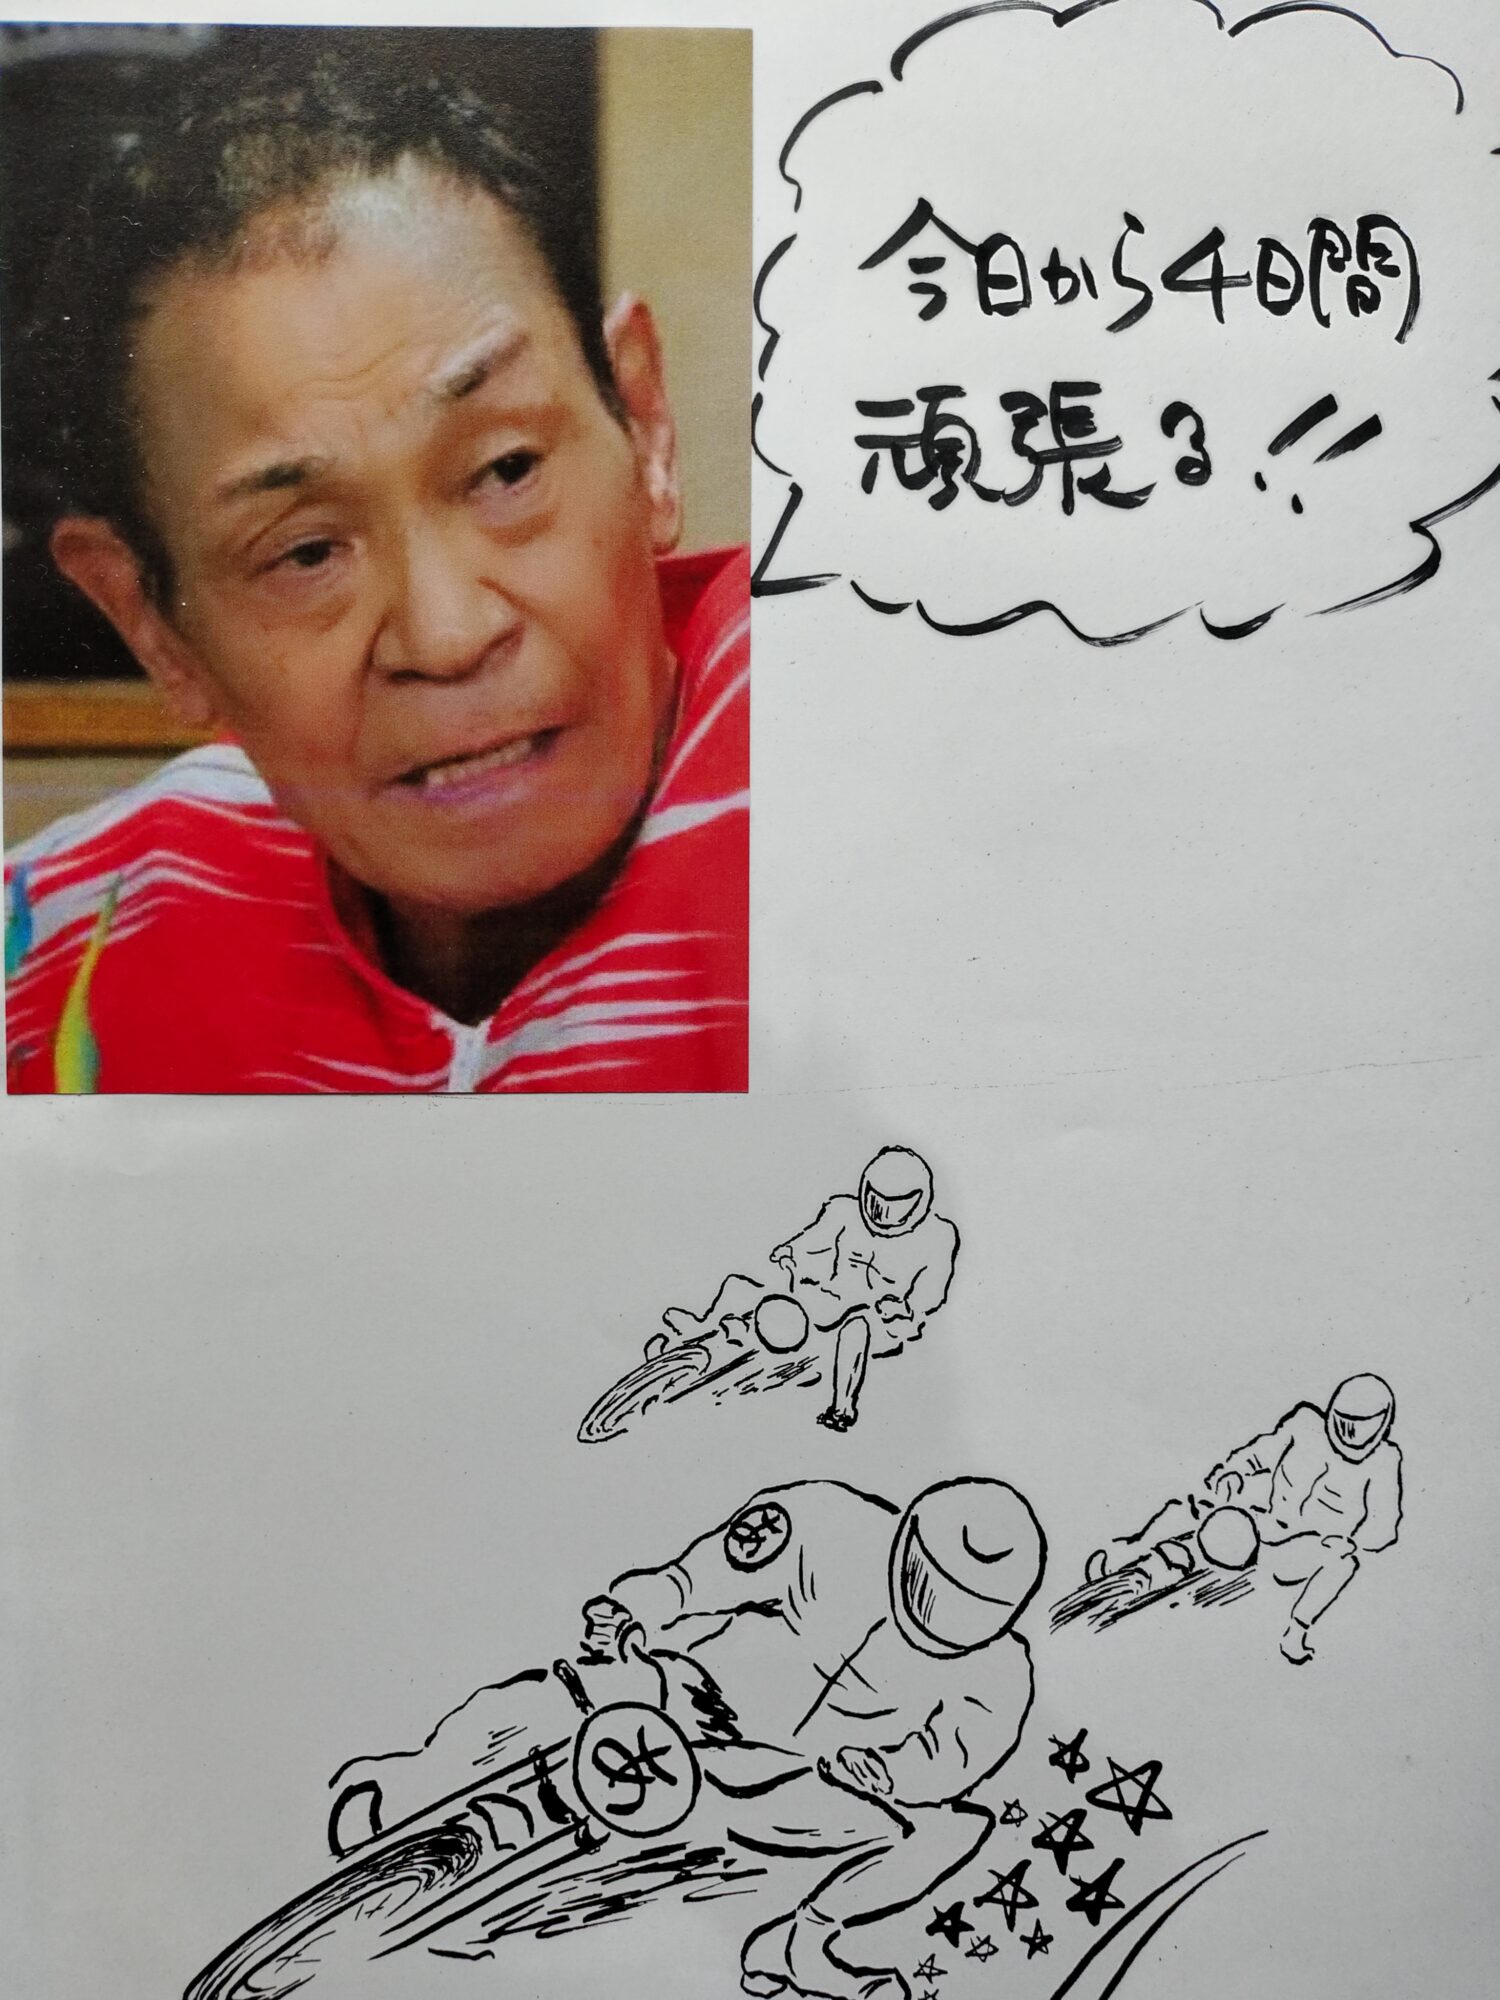 今日から4日間
頑張る!!